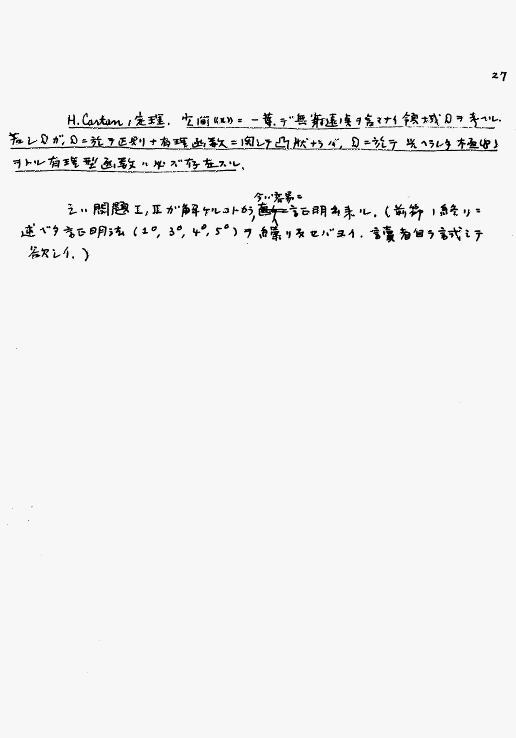 27
H. Cartan ノ定理. 空間((x))ニ一葉デ無窮遠点ヲ含マナイ領域Dヲ考ヘル.
若シDガ, Dニ於テ正則ナ有理函数ニ関シテ凸状ナラバ, Dニ於テ 与ヘラレタ極
ヲトル有理型函数ハ必ズ存在スル.
今ハ容易ニ
之ハ問題 I, II ガ解ケルコトカラ, 証明出来ル. (前節ノ終リニ
述ベタ証明法 (1°, 3°, 4°, 5°) ヲ繰リ返セバヨイ. 読者自ラ試ミテ
欲シイ.)